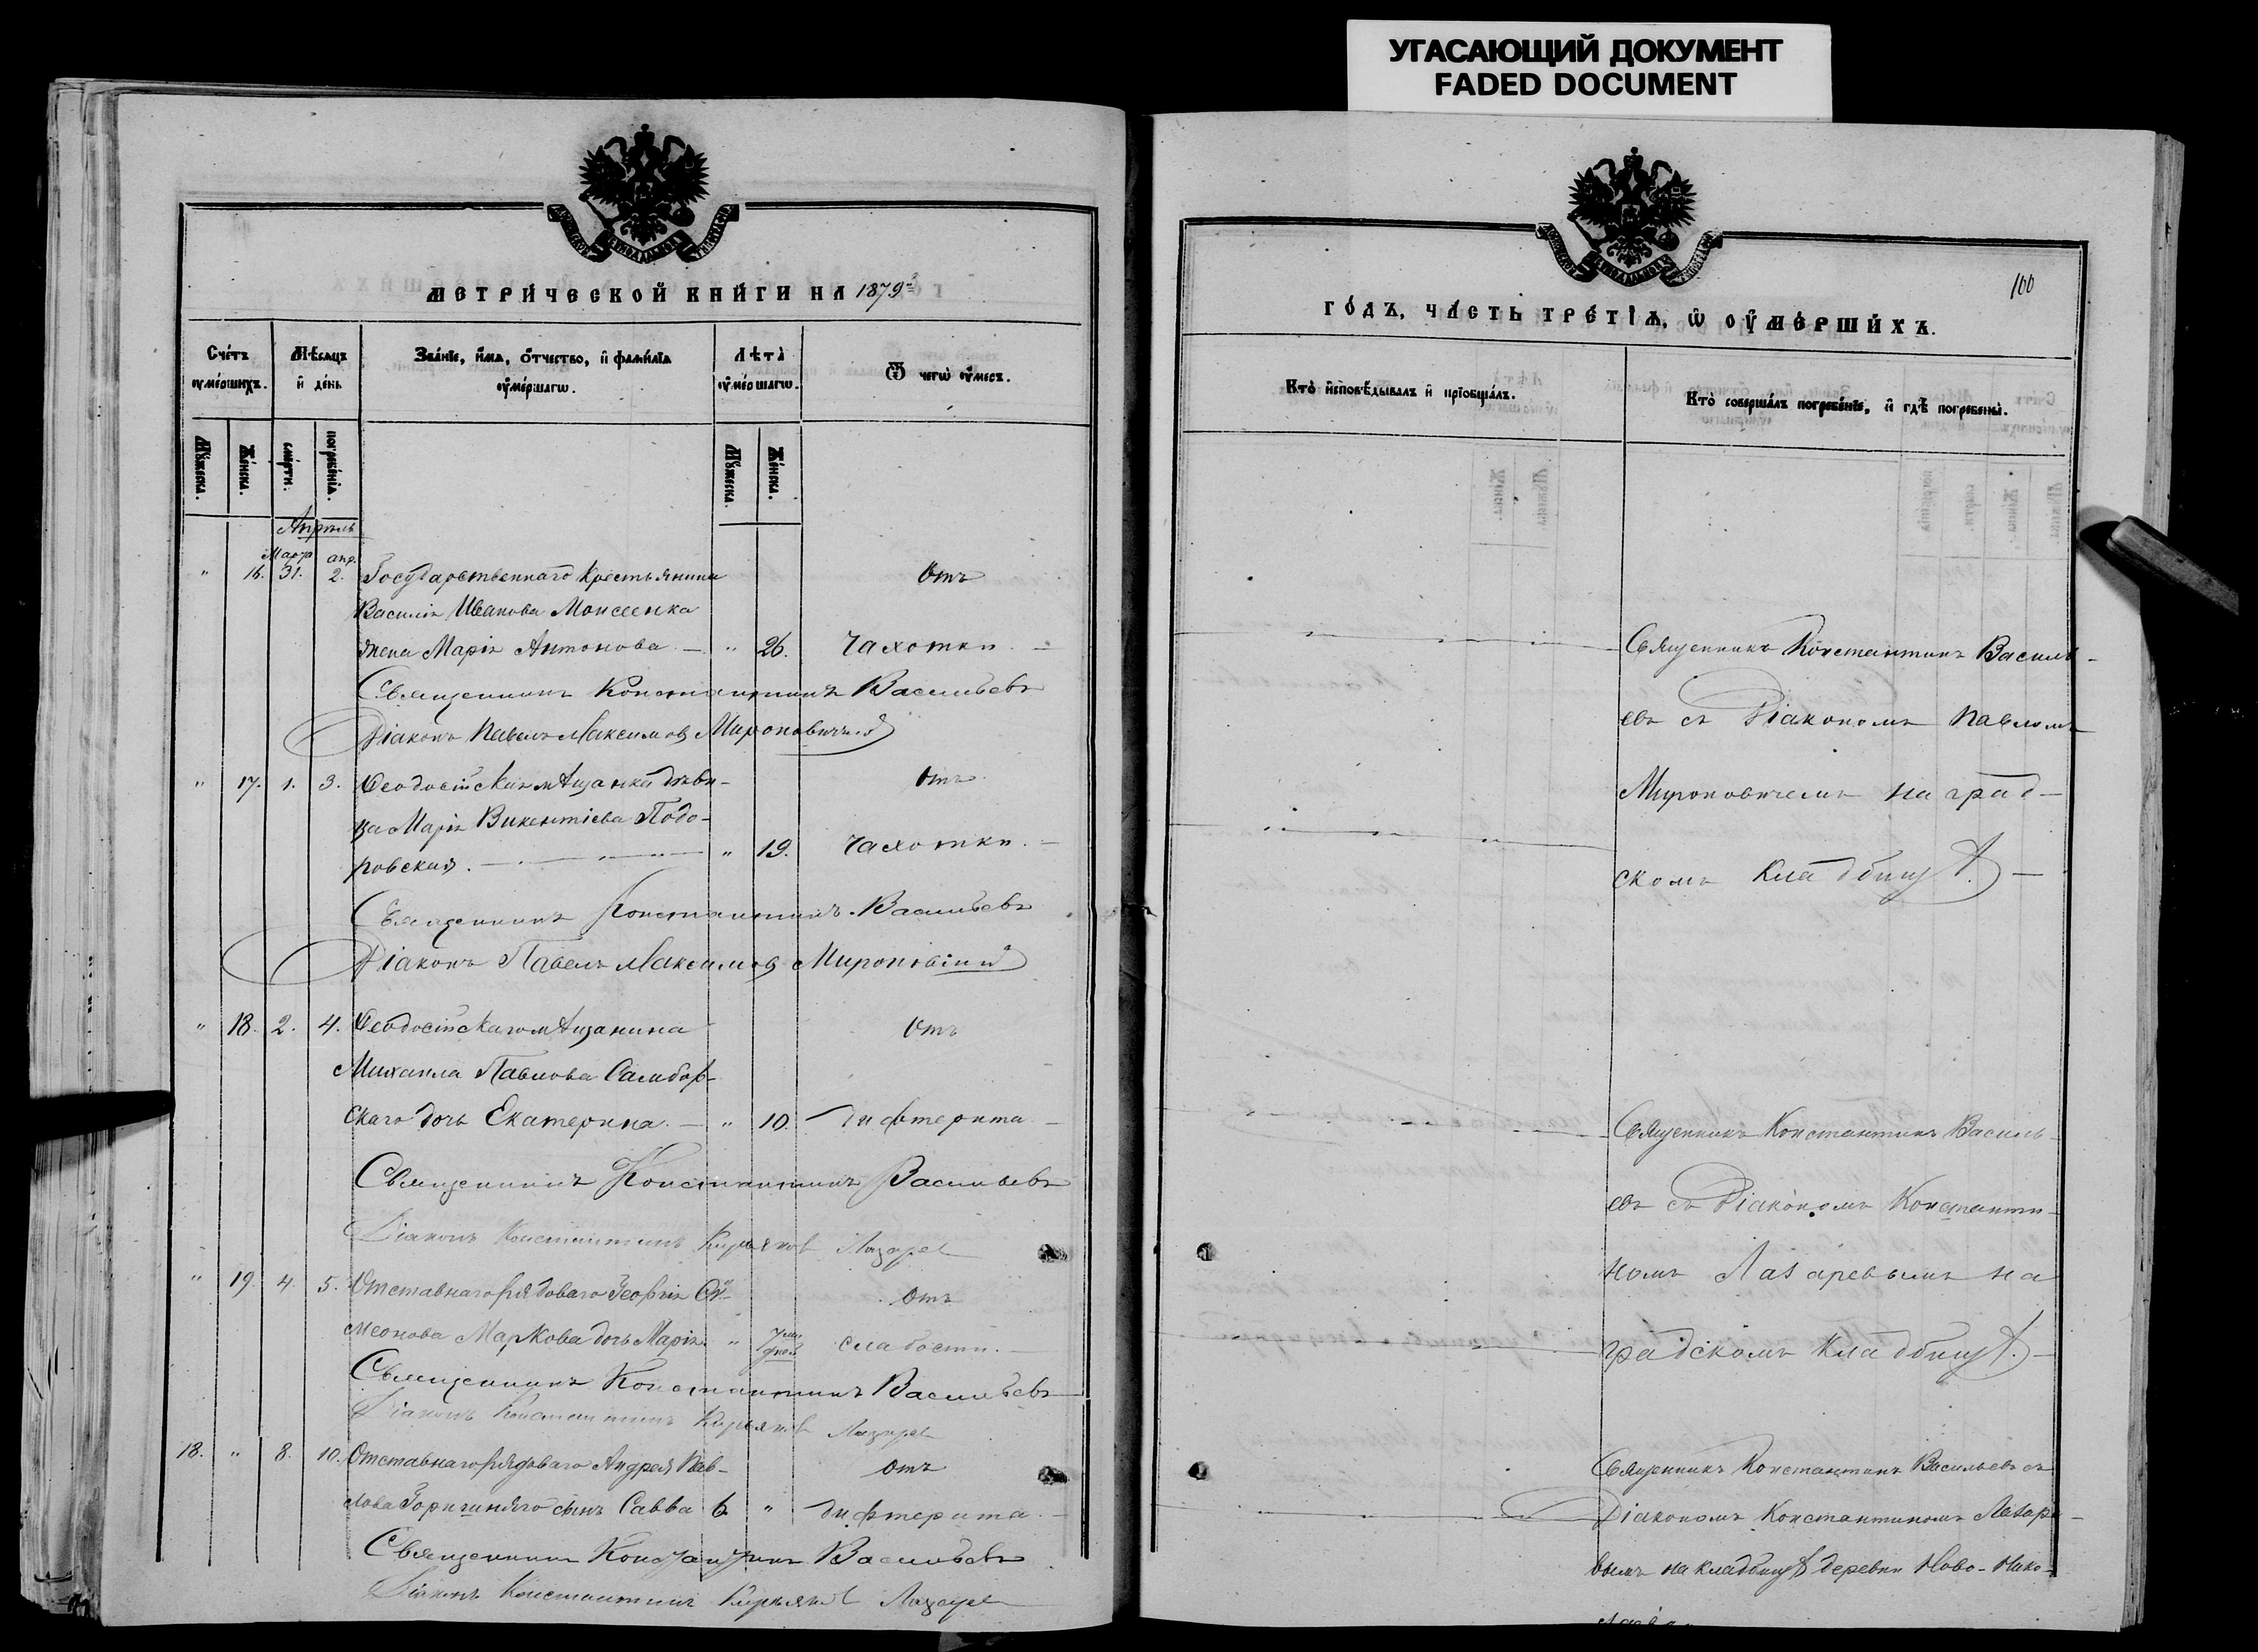 УГАСАЮЩИЙ ДОКУМЕНТ
FADED DOCUMENT
МЕТРИЧЕСКОЙ КНИГИ НА 1879й
Счетъ умершихъ.
Мѣсяцъ и день
Званіе, имя, отчество, и фамилія умершаго.
Лѣта умершаго.
Ѿ чегѡ умеръ.
Мужеска.
Женска.
смерти.
погребенія.
Мужеска.
Женска.
Апрѣль
Марта апр.
" 16. 31. 2. Государственнаго Крестьянина Отъ
Василія Иванова Моисеенка
жена Марія Антонова. — " 26. Чахотки. —
Священникъ Константинъ Васильевъ
Діаконъ Павелъ Максимовъ Мироновичъ
" 17. 1. 3. Ѳеодосійская мѣщанка дѣви- Отъ
ца Марія Викентіева Подо-
ровская. — " 19. Чахотки. —
Священникъ Константинъ Васильевъ
Діаконъ Павелъ Максимовъ
" 18. 2. 4. Ѳеодосійскаго мѣщанина Отъ
Михаила Павлова Самбор-
скаго дочь Екатерина. — " 10. дифтерита —
Священникъ Константинъ Васильевъ
Діаконъ Константинъ Кирьяковъ Лазарев
" 19. 4. 5. Отставнаго рядоваго Георгія Си- Отъ
меонова Маркова дочь Марія. " 7ми дней слабости. —
Священникъ Константинъ Васильевъ
Діаконъ Константинъ Кирьяковъ Лазарев
18. " 8. 10. Отставнаго рядоваго Андрея Пав- Отъ
лова сынъ Савва 6 " дифтерита. —
Священникъ Константинъ Васильевъ
Діаконъ Константинъ Кирьяковъ Лазарев
100
ГОДЪ, ЧАСТЬ ТРЕТІЯ, Ѡ ОУМЕРШИХЪ.
Кто исповѣдывалъ и пріобщалъ.
Кто совершалъ погребеніе, и гдѣ погребены.
Священникъ Константинъ Василь-
евъ съ Діакономъ Павломъ
Мироновичемъ на град-
скомъ кладбищѣ. —
Священникъ Константинъ Василь-
евъ съ Діакономъ Константи-
номъ Лазаревымъ на
градскомъ кладбищѣ. —
Священникъ Константинъ Васильевъ съ
Діакономъ Константиномъ Лазаре-
вымъ на кладбищѣ деревни Ново-Нико-